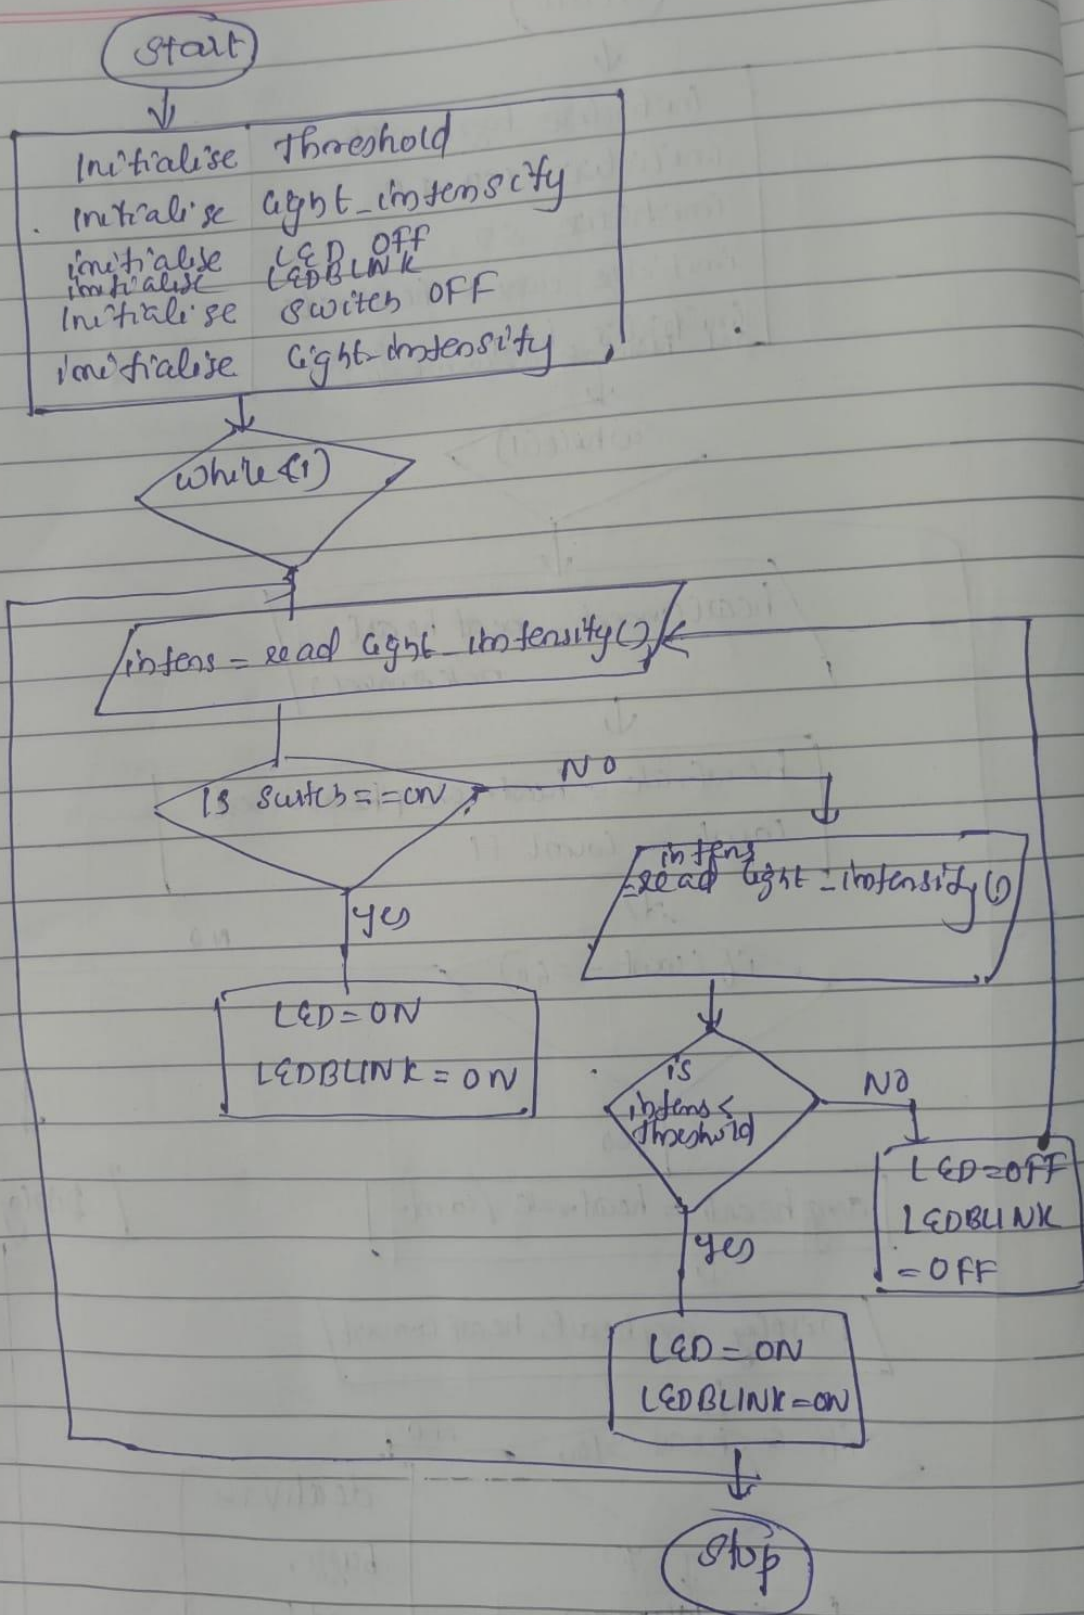 Start
Initialise Threshold
initialise light_intensity
initialise LED OFF
initialise LEDBLINK
Initialise switch OFF
initialise light-intensity
while(1)
intens = read light_intensity()
is switch==ON
NO
intens
=read light-intensity()
yes
LED=ON
LEDBLINK=ON
is
intens<
threshold
NO
LED=OFF
LEDBLINK
=OFF
yes
LED=ON
LEDBLINK=ON
Stop